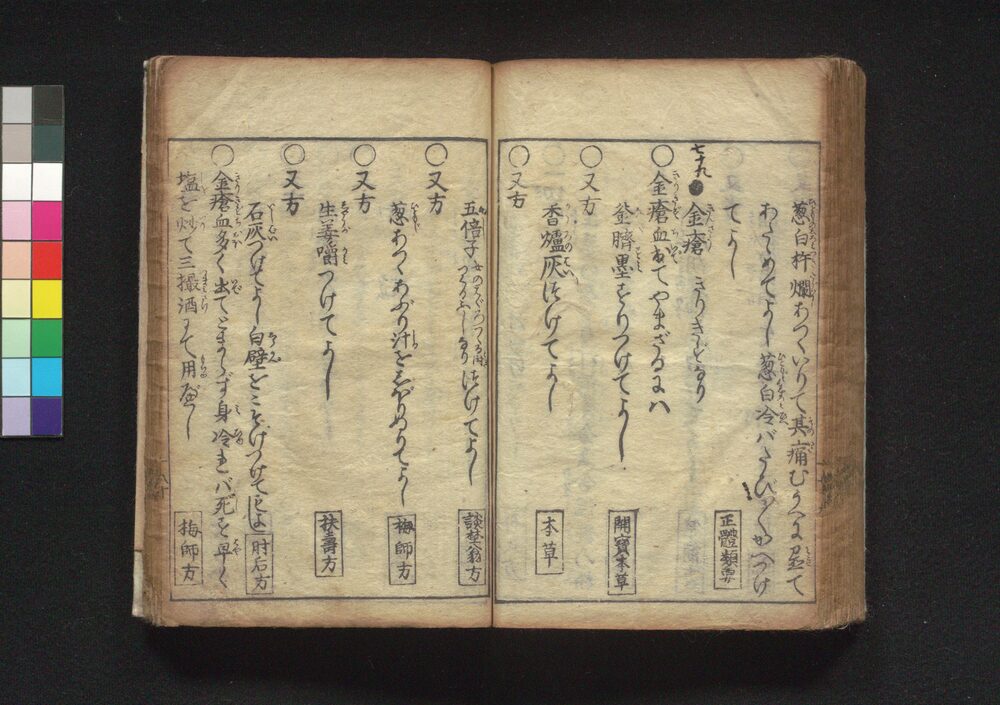 葱白杵爛あつくいりて其痛むうへに置て
あたゝめてよし葱白冷バたびたびかへつけ
てよし
正體類要
七九 金瘡 きりきずなり
○金瘡血出てやまざるにハ
○又方
釜臍墨をすりつけてよし
開寶本草
○又方
香爐灰つけてよし
本草
五倍子 つけてよし
談埜翁方
○又方
葱あつくあぶり汁をしぼりぬりてよし
梅師方
○又方
生姜嚼つけてよし
扶壽方
○又方
石灰つけてよし白壁をこそげつけてもよし
肘后方
○金瘡血多く出てとまらず身冷れバ死す早く
塩を炒て三撮酒にて用べし
梅師方